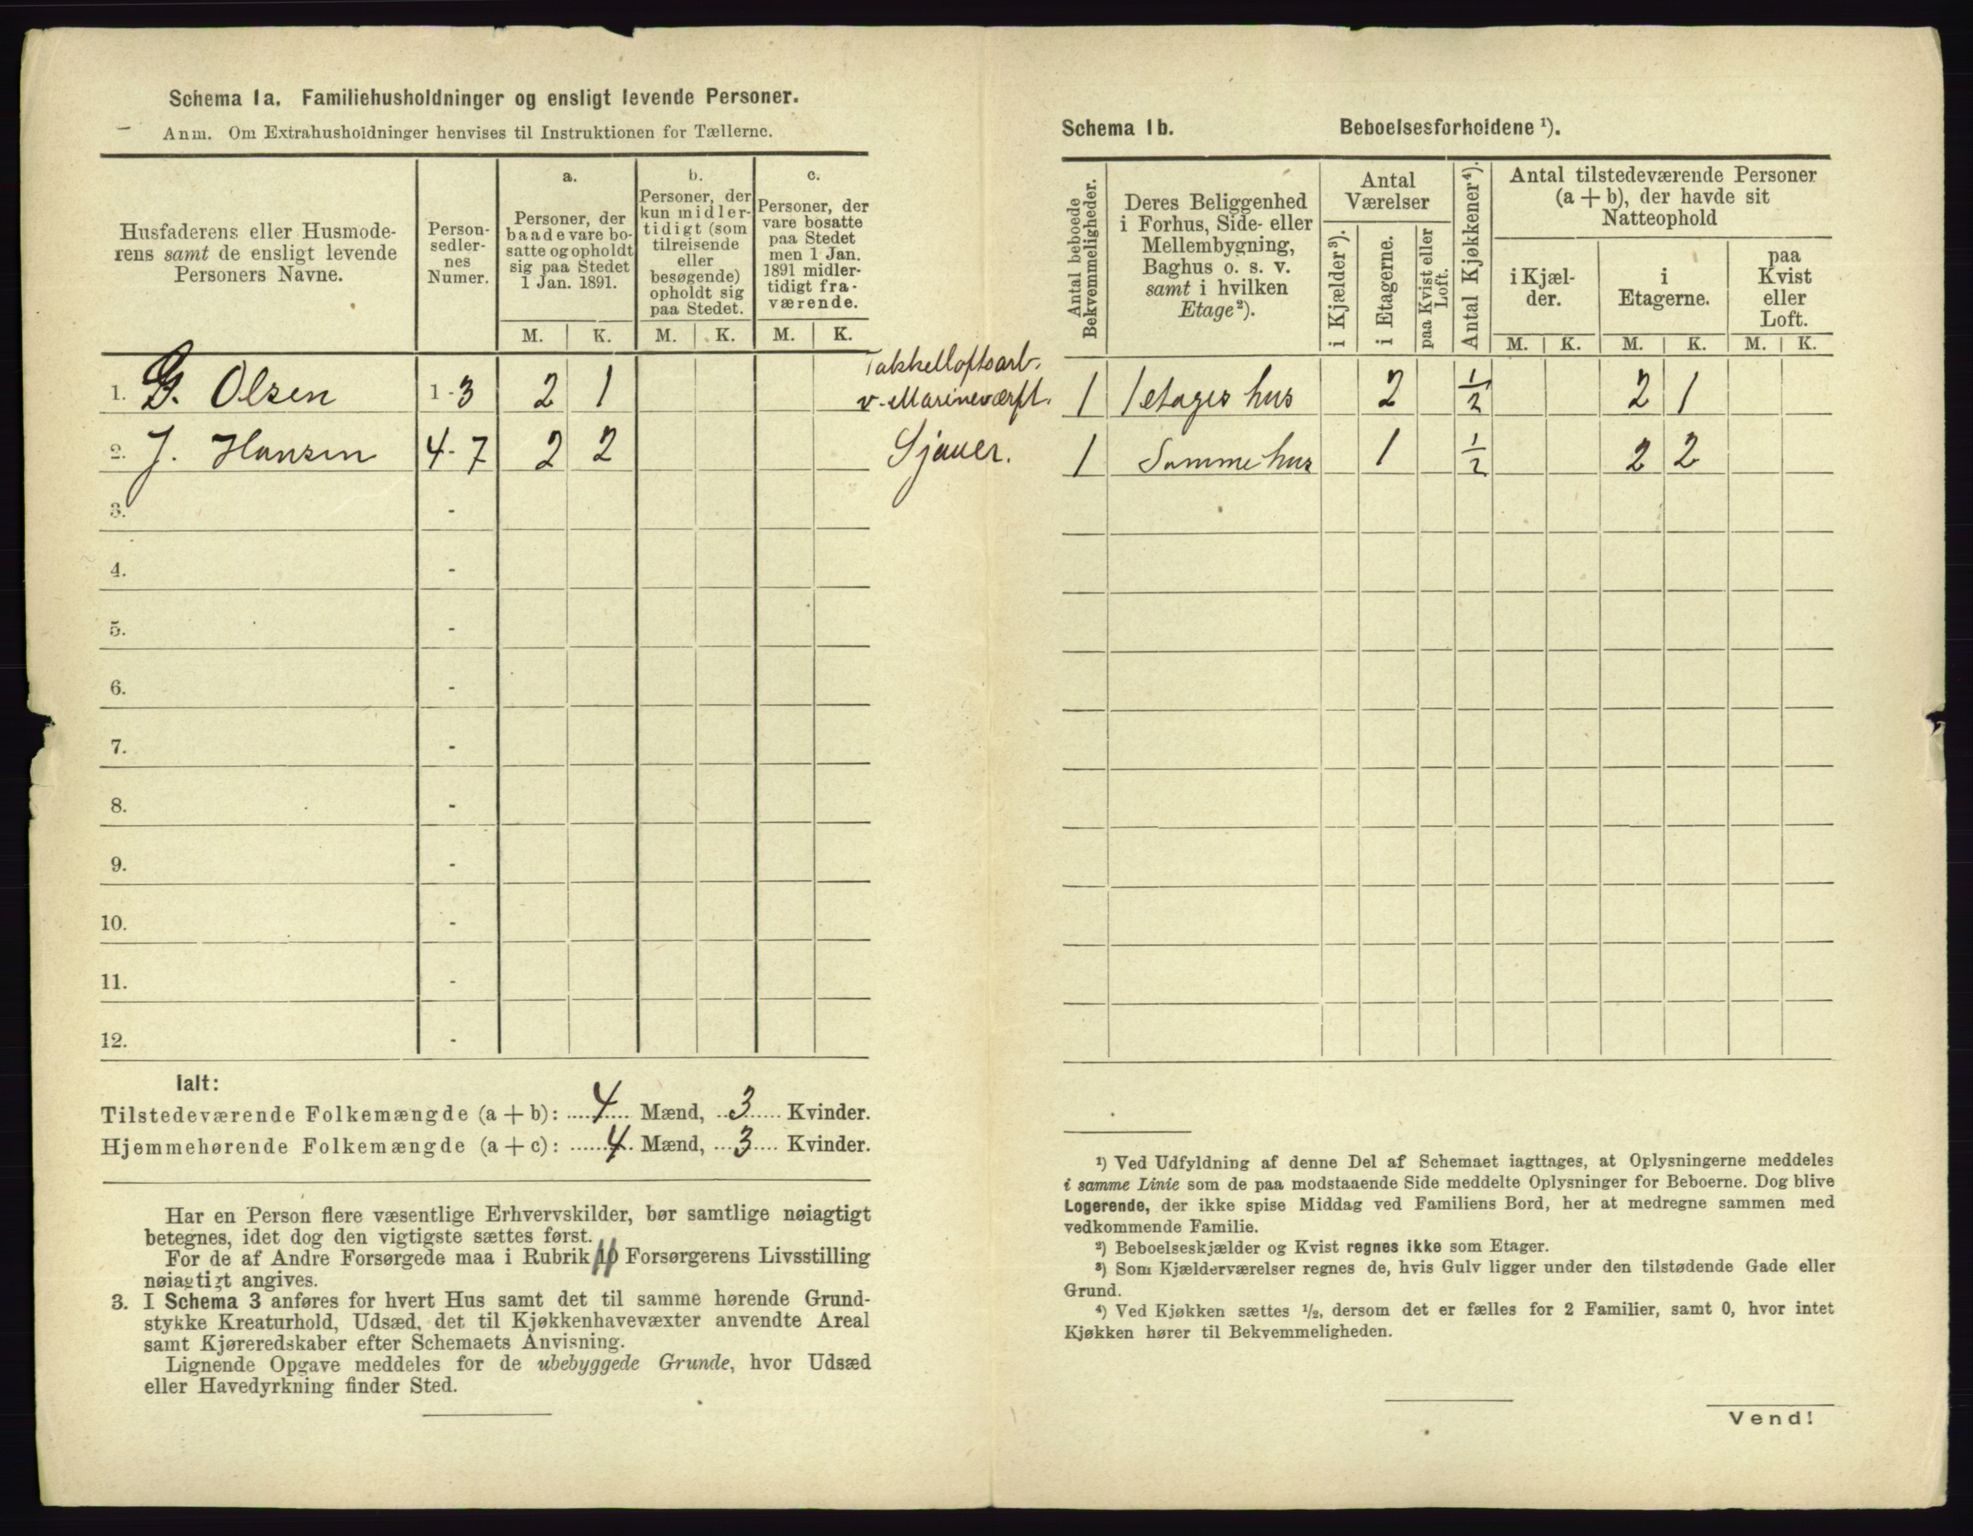 Schema 1a. Familiehusholdninger og ensligt levende Personer.
Anm. Om Extrahusholdninger henvises til Instruktionen for Tællerne.
Husfaderens eller Husmode-
rens samt de ensligt levende
Personers Navne.
Person-
sedler-
nes
Numer.
a.
Personer, der
baade vare bo-
satte og opholdt
sig paa Stedet
1 Jan. 1891.
b.
Personer, der
kun midler-
tidigt (som
tilreisende
eller
besøgende)
opholdt sig
paa Stedet.
c.
Personer, der
vare bosatte
paa Stedet
men 1 Jan.
1891 midler-
tidigt fra-
værende.
M. K. M. K. M. K.
1. G. Olsen 1-3 2 1
Takkelloftsarb.
v. Marineværft.
2. J. Hansen 4-7 2 2 Sjauer.
3. -
4. -
5. -
6. -
7. -
8. -
9. -
10. -
11. -
12. -
Ialt:
Tilstedeværende Folkemængde (a + b): 4 Mænd, 3 Kvinder.
Hjemmehørende Folkemængde (a + c): 4 Mænd, 3 Kvinder.
Har en Person flere væsentlige Erhvervskilder, bør samtlige nøiagtigt
betegnes, idet dog den vigtigste sættes først.
For de af Andre Forsørgede maa i Rubrik 10 Forsørgerens Livsstilling
nøiagtigt angives.
3. I Schema 3 anføres for hvert Hus samt det til samme hørende Grund-
stykke Kreaturhold, Udsæd, det til Kjøkkenhavevæxter anvendte Areal
samt Kjøreredskaber efter Schemaets Anvisning.
Lignende Opgave meddeles for de ubebyggede Grunde, hvor Udsæd
eller Havedyrkning finder Sted.
Schema 1b. Beboelsesforholdene ¹).
Antal beboede
Bekvemmeligheder.
Deres Beliggenhed
i Forhus, Side- eller
Mellembygning,
Baghus o. s. v.
samt i hvilken
Etage²).
Antal
Værelser
i Kjælder³).
i Etagerne.
paa Kvist eller
Loft.
Antal Kjøkkener⁴).
Antal tilstedeværende Personer
(a + b), der havde sit
Natteophold
i Kjæl-
der.
i
Etagerne.
paa
Kvist
eller
Loft.
M. K. M. K. M. K.
1 1 etages hus 2 ½ 2 1
1 Samme hus 1 ½ 2 2
¹) Ved Udfyldning af denne Del af Schemaet iagttages, at Oplysningerne meddeles
i samme Linie som de paa modstaaende Side meddelte Oplysninger for Beboerne. Dog blive
Logerende, der ikke spise Middag ved Familiens Bord, her at medregne sammen med
vedkommende Familie.
²) Beboelseskjælder og Kvist regnes ikke som Etager.
³) Som Kjælderværelser regnes de, hvis Gulv ligger under den tilstødende Gade eller
Grund.
⁴) Ved Kjøkken sættes ½, dersom det er fælles for 2 Familier, samt 0, hvor intet
Kjøkken hører til Bekvemmeligheden.
Vend!